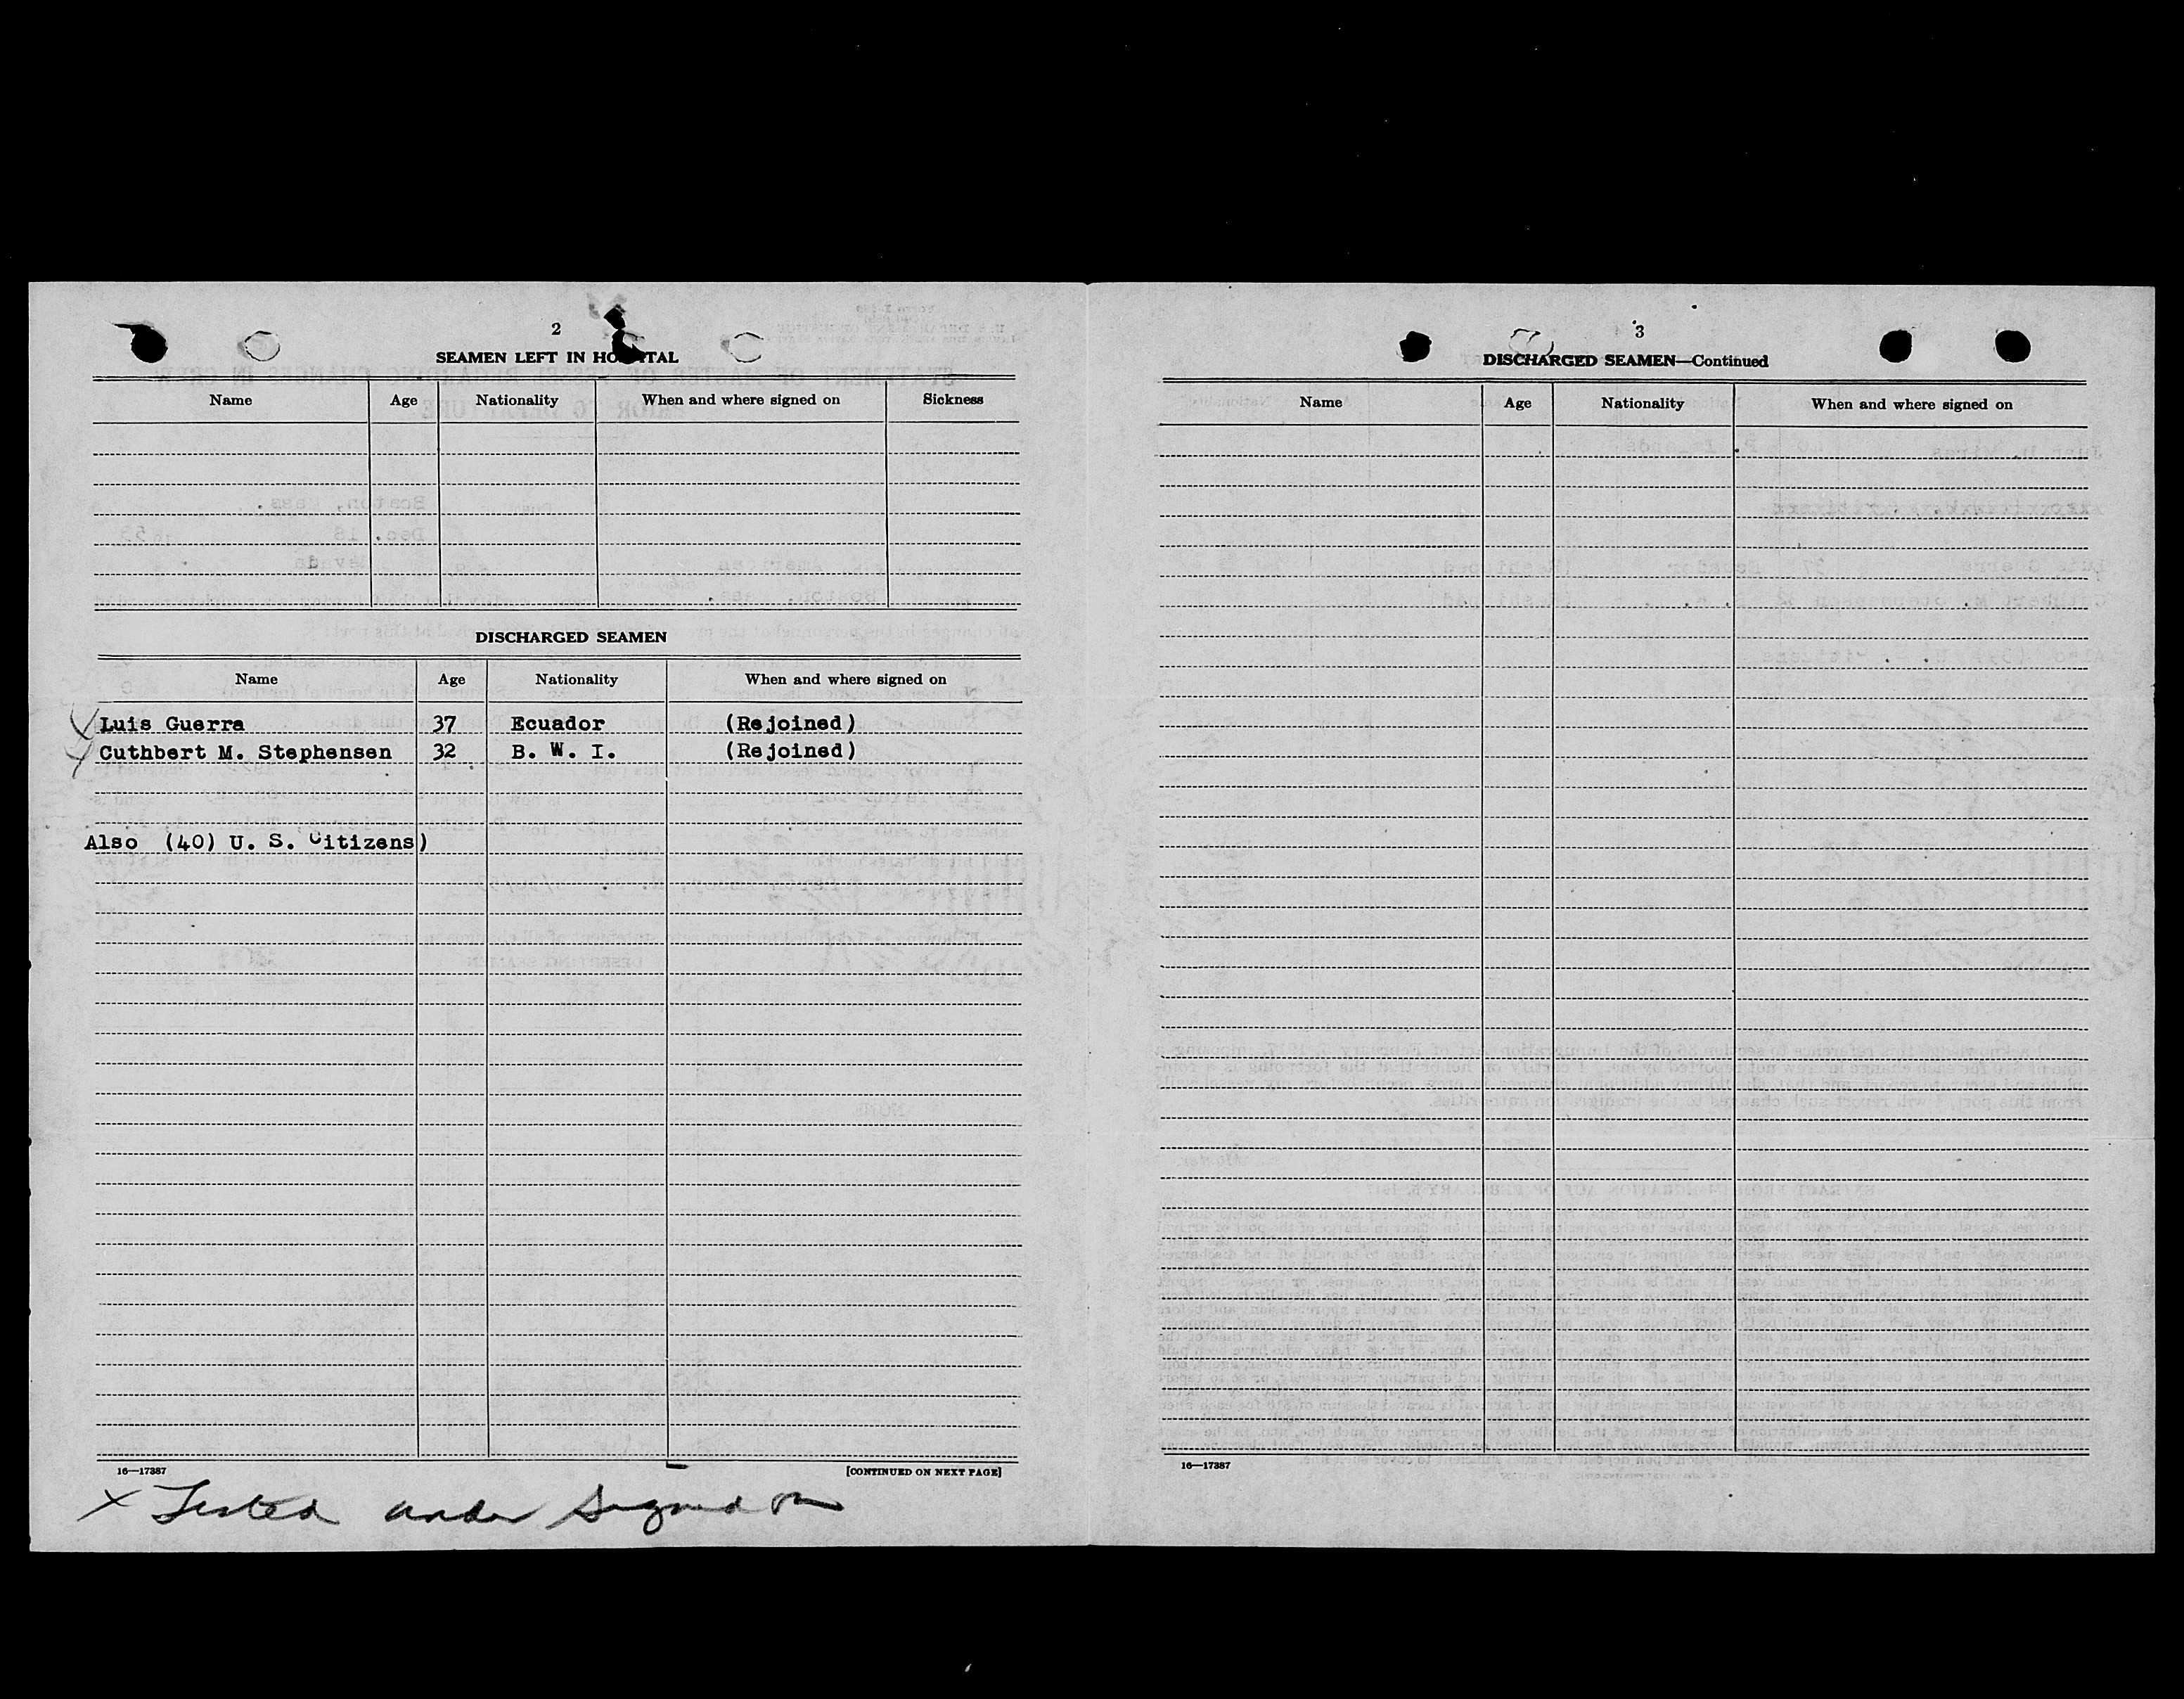 2
SEAMEN LEFT IN HOSPITAL
Name Age Nationality When and where signed on Sickness
DISCHARGED SEAMEN
Name Age Nationality When and where signed on
Luis Guerra 37 Ecuador (Rejoined)
Cuthbert M. Stephensen 32 B. W. I. (Rejoined)
Also (40) U. S. Citizens)
16—17387 [CONTINUED ON NEXT PAGE]
x Listed under Signed on
3
DISCHARGED SEAMEN—Continued
Name Age Nationality When and where signed on
16—17387